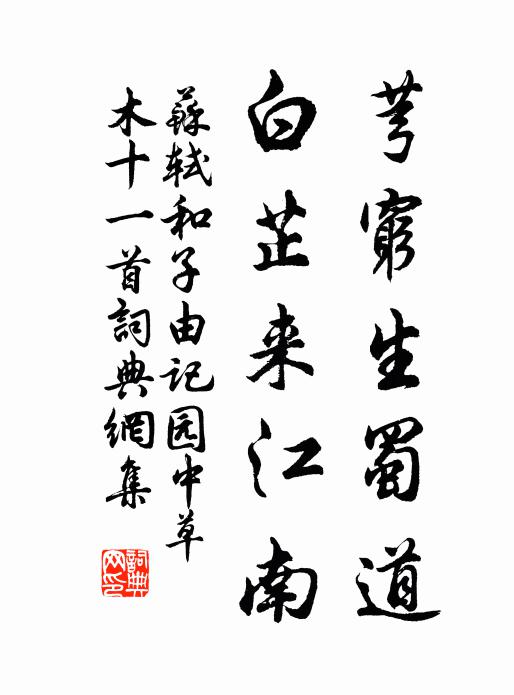 芎窮生蜀道
白芷来江南
蘇軾和子由记园中草
木十一首詞典網集
詞典網印